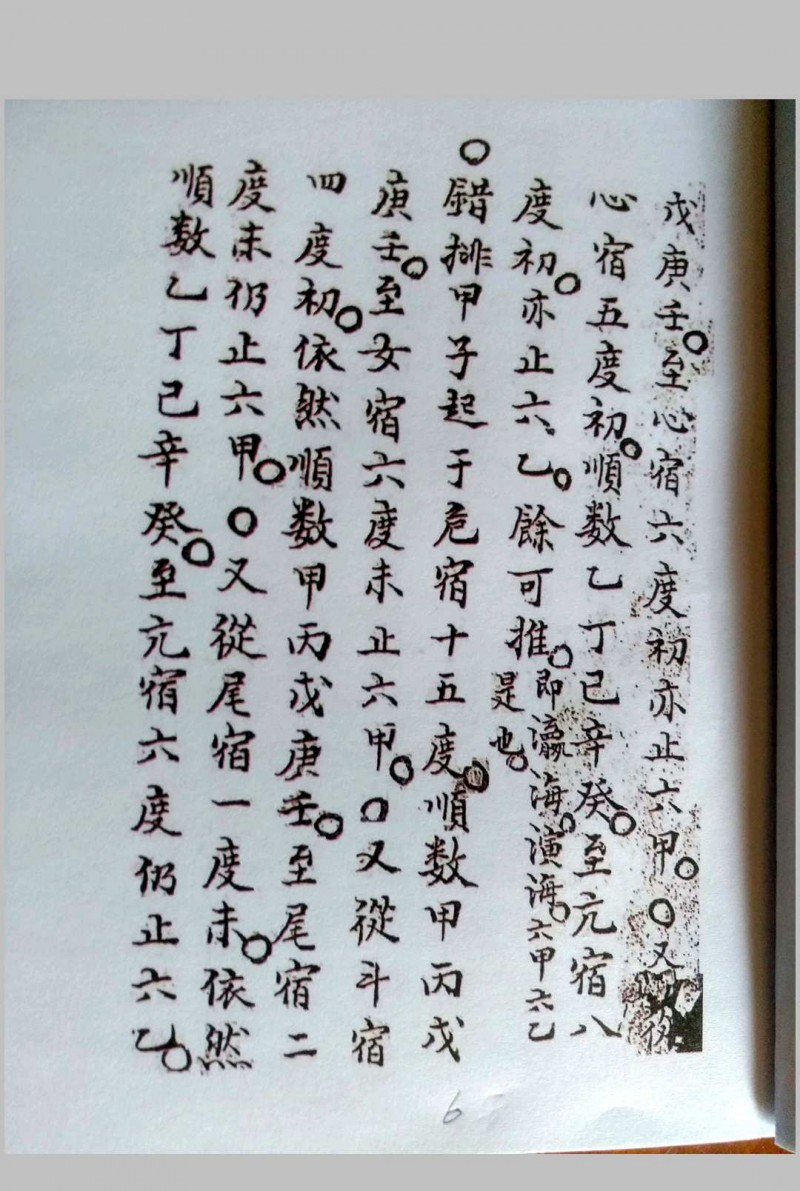 戊庚壬○至心宿六度初亦止六甲○○又
心宿五度初○順数乙丁己辛癸○至亢宿八
度初○亦止六乙○餘可推○
即瀛海○演海○六甲六乙
是也○
○錯排甲子起于危宿十五度○順数甲丙戊
庚壬○至女宿六度末止六甲○○又從斗宿
四度初○依然順数甲丙戊庚壬○至尾宿二
度末仍止六甲○○又從尾宿一度末○依然
順数乙丁己辛癸○至亢宿六度仍止六乙○
6